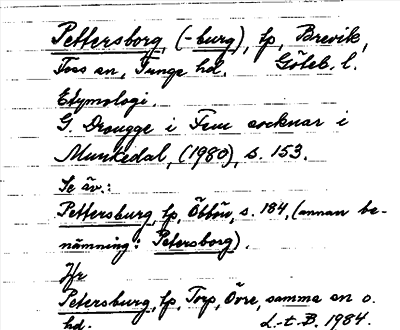 Pettersborg, (-burg), lp, Brevik,
Foss sn, Tunge hd. Göteb. l.
Etymologi.
G. Drougge i Fem socknar i
Munkedal, (1980), s. 153.
Se äv.:
Pettersburg, lp, Öbbön, s. 184, (annan be-
nämning: Petersborg).
Jfr
Petersburg, lp, Torp, Övre, samma sn o.
hd. L-t B 1984.